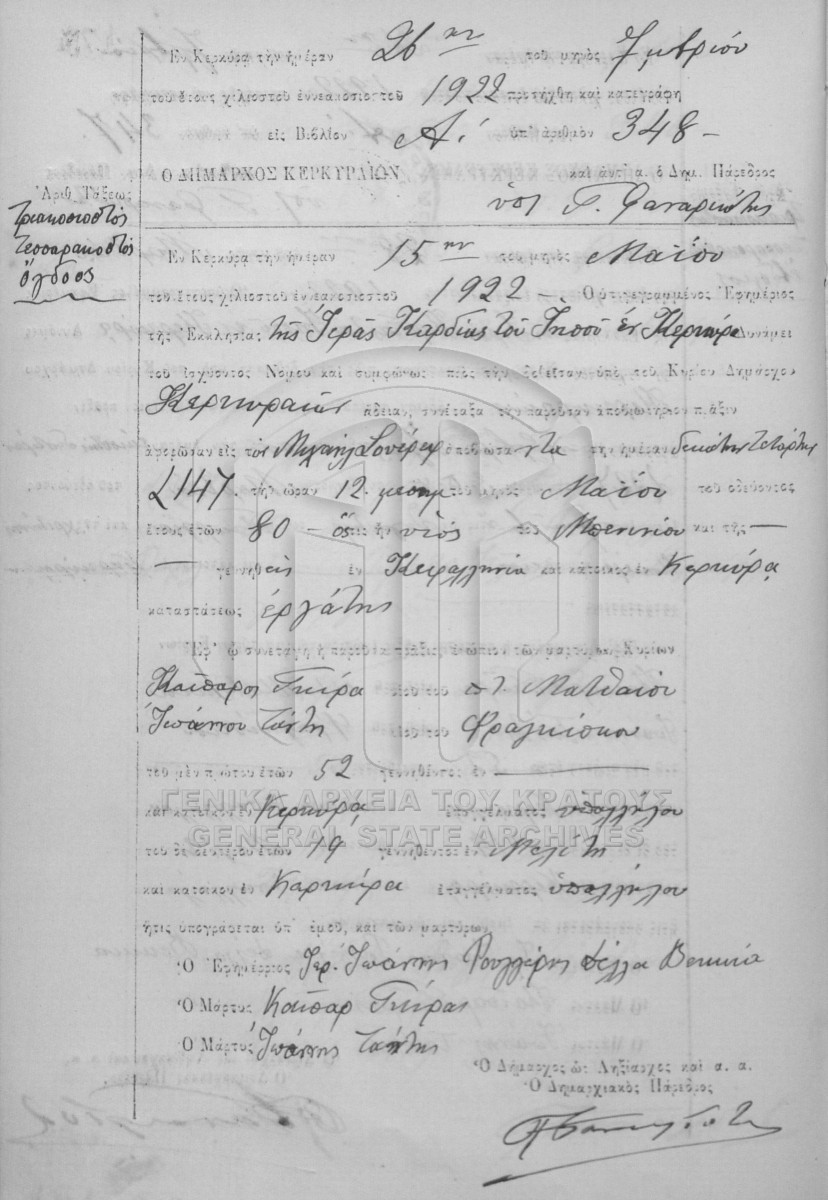 Ἐν Κερκύρᾳ τὴν ἡμέραν 26ην τοῦ μηνὸς 7μβρίου
τοῦ ἔτους χιλιοστοῦ ἐννεακοσιοστοῦ 1922 προσήχθη καὶ κατεγράφη
εἰς Βιβλίον Α΄. ὑπ' ἀριθμὸν 348 —
Ο ΔΗΜΑΡΧΟΣ ΚΕΡΚΥΡΑΙΩΝ καὶ ἀντ' α. ὁ Δημ. Πάρεδρος
Ἀριθ. Τάξεως
τριακοσιοστὸς
τεσσαρακοστὸς
ὄγδοος
Ἐν Κερκύρᾳ τὴν ἡμέραν 15ην τοῦ μηνὸς Μαΐου
τοῦ ἔτους χιλιοστοῦ ἐννεακοσιοστοῦ 1922 —. Ὁ ὑπογεγραμμένος Ἐφημέριος
τῆς Ἐκκλησίας τῆς Ἱερᾶς Καρδίας τοῦ Ἰησοῦ ἐν Κερκύρᾳ Δυνάμει
τοῦ ἰσχύοντος Νόμου καὶ συμφώνως πρὸς τὴν δοθεῖσαν ὑπὸ τοῦ Κυρίου Δημάρχου
Κερκυραίων ἄδειαν, συνέταξα τὴν παροῦσαν ἀποβιωτήριον πρᾶξιν
ἀφορῶσαν εἰς τὸν Μιχαὴλ ἀποβιώσαντα τὴν ἡμέραν δεκάτην τετάρτην
L 147. τὴν ὥραν 12. μεσημ τοῦ μηνὸς Μαΐου τοῦ ὁδεύοντος
ἔτους ἐτῶν 80 — ὅστις ἦν υἱὸς τοῦ καὶ τῆς —
— γεννηθεὶς ἐν Κεφαλληνίᾳ καὶ κάτοικος ἐν Κερκύρᾳ
καταστάσεως ἐργάτης
Ἐφ' ᾧ συνετάγη ἡ παροῦσα πρᾶξις ἐνώπιον τῶν μαρτύρων Κυρίων
Κάσπαρος Γκίρα υἱοῦ τοῦ ποτ. Ματθαίου
Ἰωάννου υἱοῦ τοῦ Φραγκίσκου
τοῦ μὲν πρώτου ἐτῶν 52 γεννηθέντος ἐν —
καὶ κατοίκου ἐν Κερκύρᾳ ἐπαγγέλματος ὑπαλλήλου
ΓΕΝΙΚΑ ΑΡΧΕΙΑ ΤΟΥ ΚΡΑΤΟΥΣ
GENERAL STATE ARCHIVES
τοῦ δὲ δευτέρου ἐτῶν 19 γεννηθέντος ἐν Μελίτῃ
καὶ κατοίκου ἐν Κερκύρᾳ ἐπαγγέλματος ὑπαλλήλου
ἥτις ὑπογράφεται ὑπ' ἐμοῦ, καὶ τῶν μαρτύρων.
Ὁ Ἐφημέριος Ἱερ. Ἰωάννης
Ὁ Μάρτυς Κάσπαρ Γκίρας
Ὁ Μάρτυς Ἰωάννης
Ὁ Δήμαρχος ὡς Ληξίαρχος καὶ α. α.
Ὁ Δημαρχιακὸς Πάρεδρος